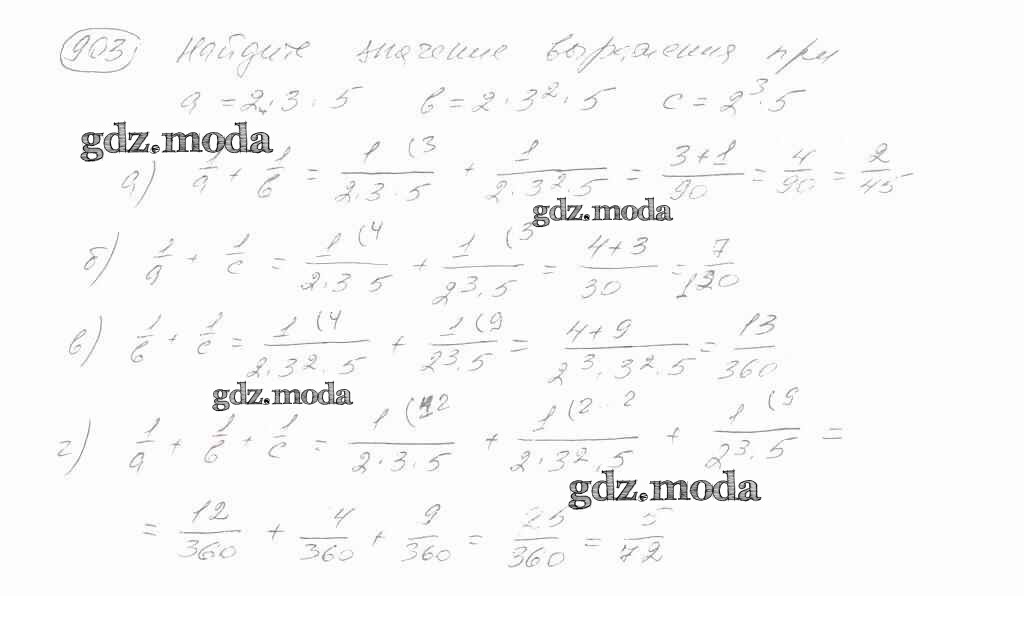 903) Найдите значение выражения при
a = 2 · 3 · 5 b = 2 · 3² · 5 c = 2³ · 5
gdz.moda
а) 1/a + 1/b = 1/(2 · 3 · 5) (3 + 1/(2 · 3² · 5) = (3 + 1)/90 = 4/90 = 2/45
gdz.moda
б) 1/a + 1/c = 1/(2 · 3 5) (4 + 1/(2³ · 5) (3 = (4 + 3)/30 = 7/120
в) 1/b + 1/c = 1/(2 · 3² · 5) (4 + 1/(2³ · 5) (9 = (4 + 9)/(2³ · 3² · 5) = 13/360
gdz.moda
г) 1/a + 1/b + 1/c = 1/(2 · 3 · 5) (12 + 1/(2 · 3² · 5) (2 · 2 + 1/(2³ · 5) (9 =
gdz.moda
= 12/360 + 4/360 + 9/360 = 25/360 = 5/72